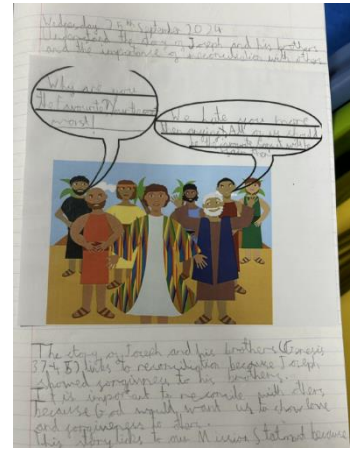 Wednesday 25th September 2024
Understand the story of Joseph and his brothers
and the importance of reconciliation with others
Why are you
the favourite? You're the
worst!
We hate you more
than anyone! All of us should
be
The story of Joseph and his brothers (Genesis
37-45) links to reconciliation because Joseph
showed forgivness to his brothers.
It is important to reconcile with others
because God would want us to show love
and forgiveness to others.
This story links to our Mission Statement because